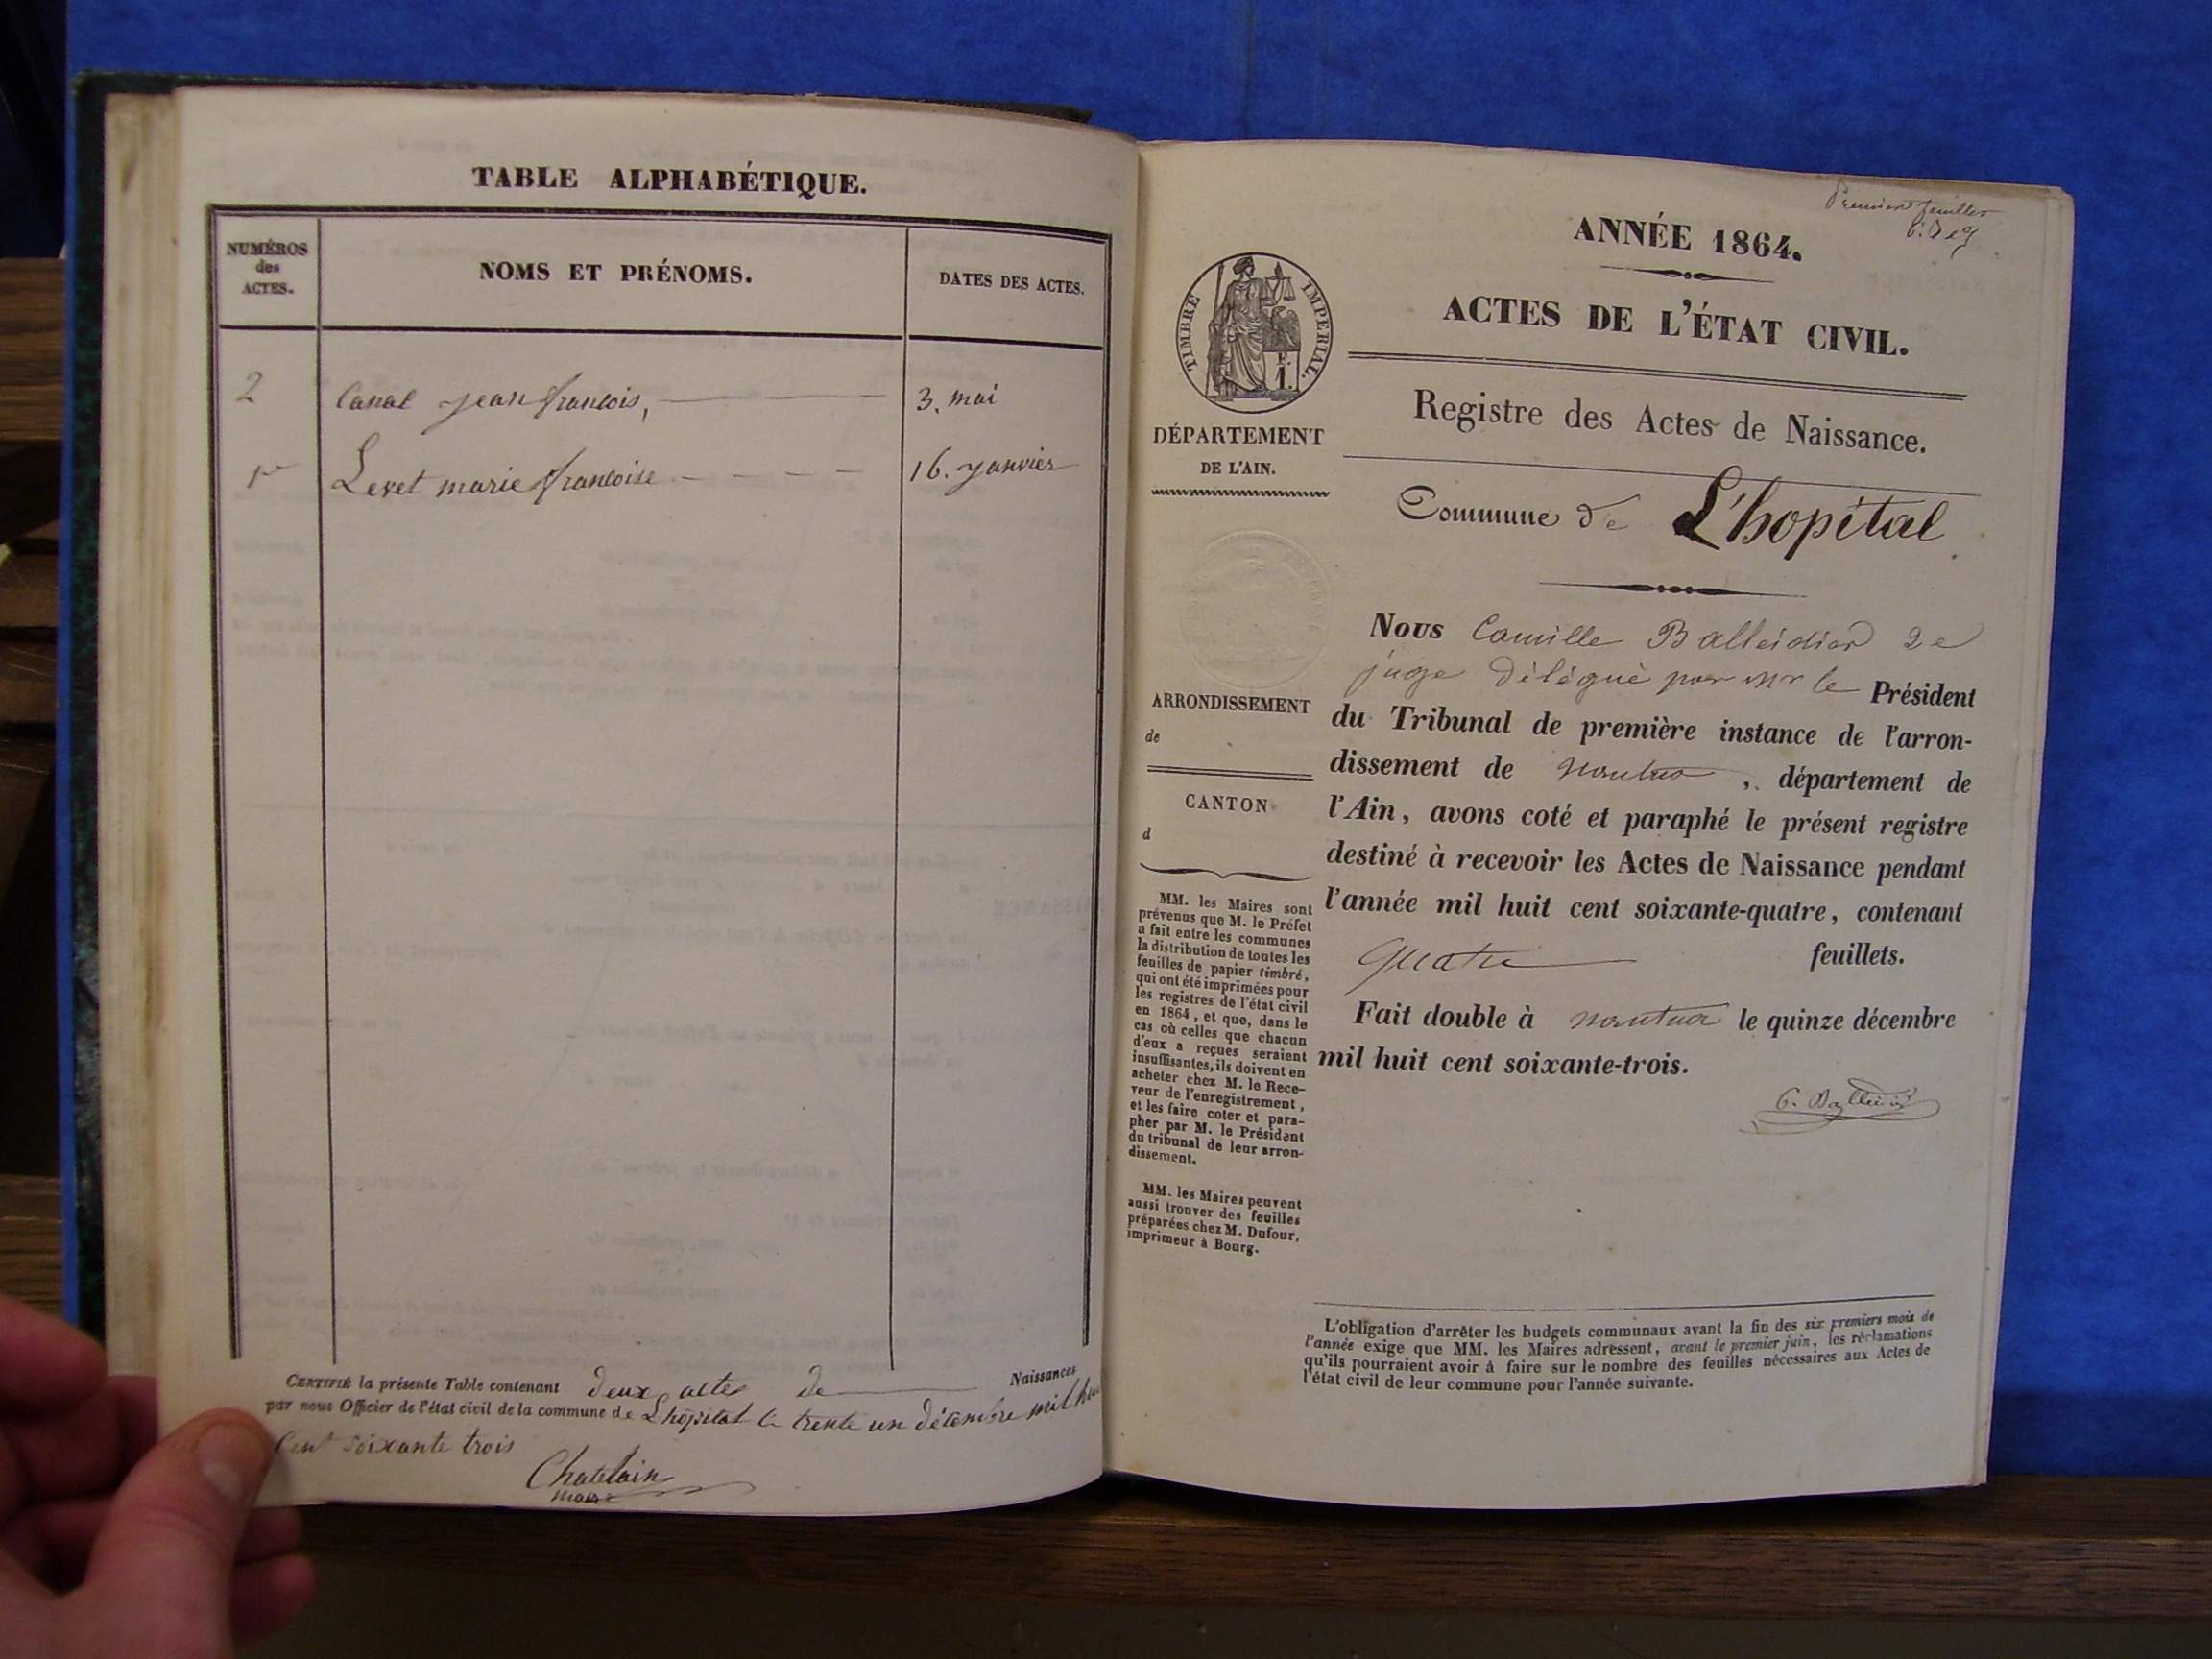 TABLE ALPHABÉTIQUE.
NUMÉROS
des
ACTES.
NOMS ET PRÉNOMS.
DATES DES ACTES.
2 Canal jean françois, 3. mai
1er Levet marie françoise 16. janvier
CERTIFIÉ la présente Table contenant deux actes de Naissances
par nous Officier de l'état civil de la commune de L'hôpital le trente un décembre mil hui
cent soixante trois
Chatelain
maire
Premier feuillet
ANNÉE 1864.
ACTES DE L'ÉTAT CIVIL.
Registre des Actes de Naissance.
Commune de L'hopital
TIMBRE IMPERIAL.
F.
1.
DÉPARTEMENT
DE L'AIN.
ARRONDISSEMENT
de
CANTON
d
MM. les Maires sont
prévenus que M. le Préfet
a fait entre les communes
la distribution de toutes les
feuilles de papier timbré,
qui ont été imprimées pour
les registres de l'état civil
en 1864, et que, dans le
cas où celles que chacun
d'eux a reçues seraient
insuffisantes, ils doivent en
acheter chez M. le Rece-
veur de l'enregistrement,
et les faire coter et para-
pher par M. le Président
du tribunal de leur arron-
dissement.
MM. les Maires peuvent
aussi trouver des feuilles
préparées chez M. Dufour,
imprimeur à Bourg.
Nous Camille Balleidier 2e
juge délégué par Mr le Président
du Tribunal de première instance de l'arron-
dissement de nantua, département de
l'Ain, avons coté et paraphé le présent registre
destiné à recevoir les Actes de Naissance pendant
l'année mil huit cent soixante-quatre, contenant
quatre feuillets.
Fait double à nantua le quinze décembre
mil huit cent soixante-trois.
C. Balleidier
L'obligation d'arrêter les budgets communaux avant la fin des six premiers mois de
l'année exige que MM. les Maires adressent, avant le premier juin, les réclamations
qu'ils pourraient avoir à faire sur le nombre des feuilles nécessaires aux Actes de
l'état civil de leur commune pour l'année suivante.